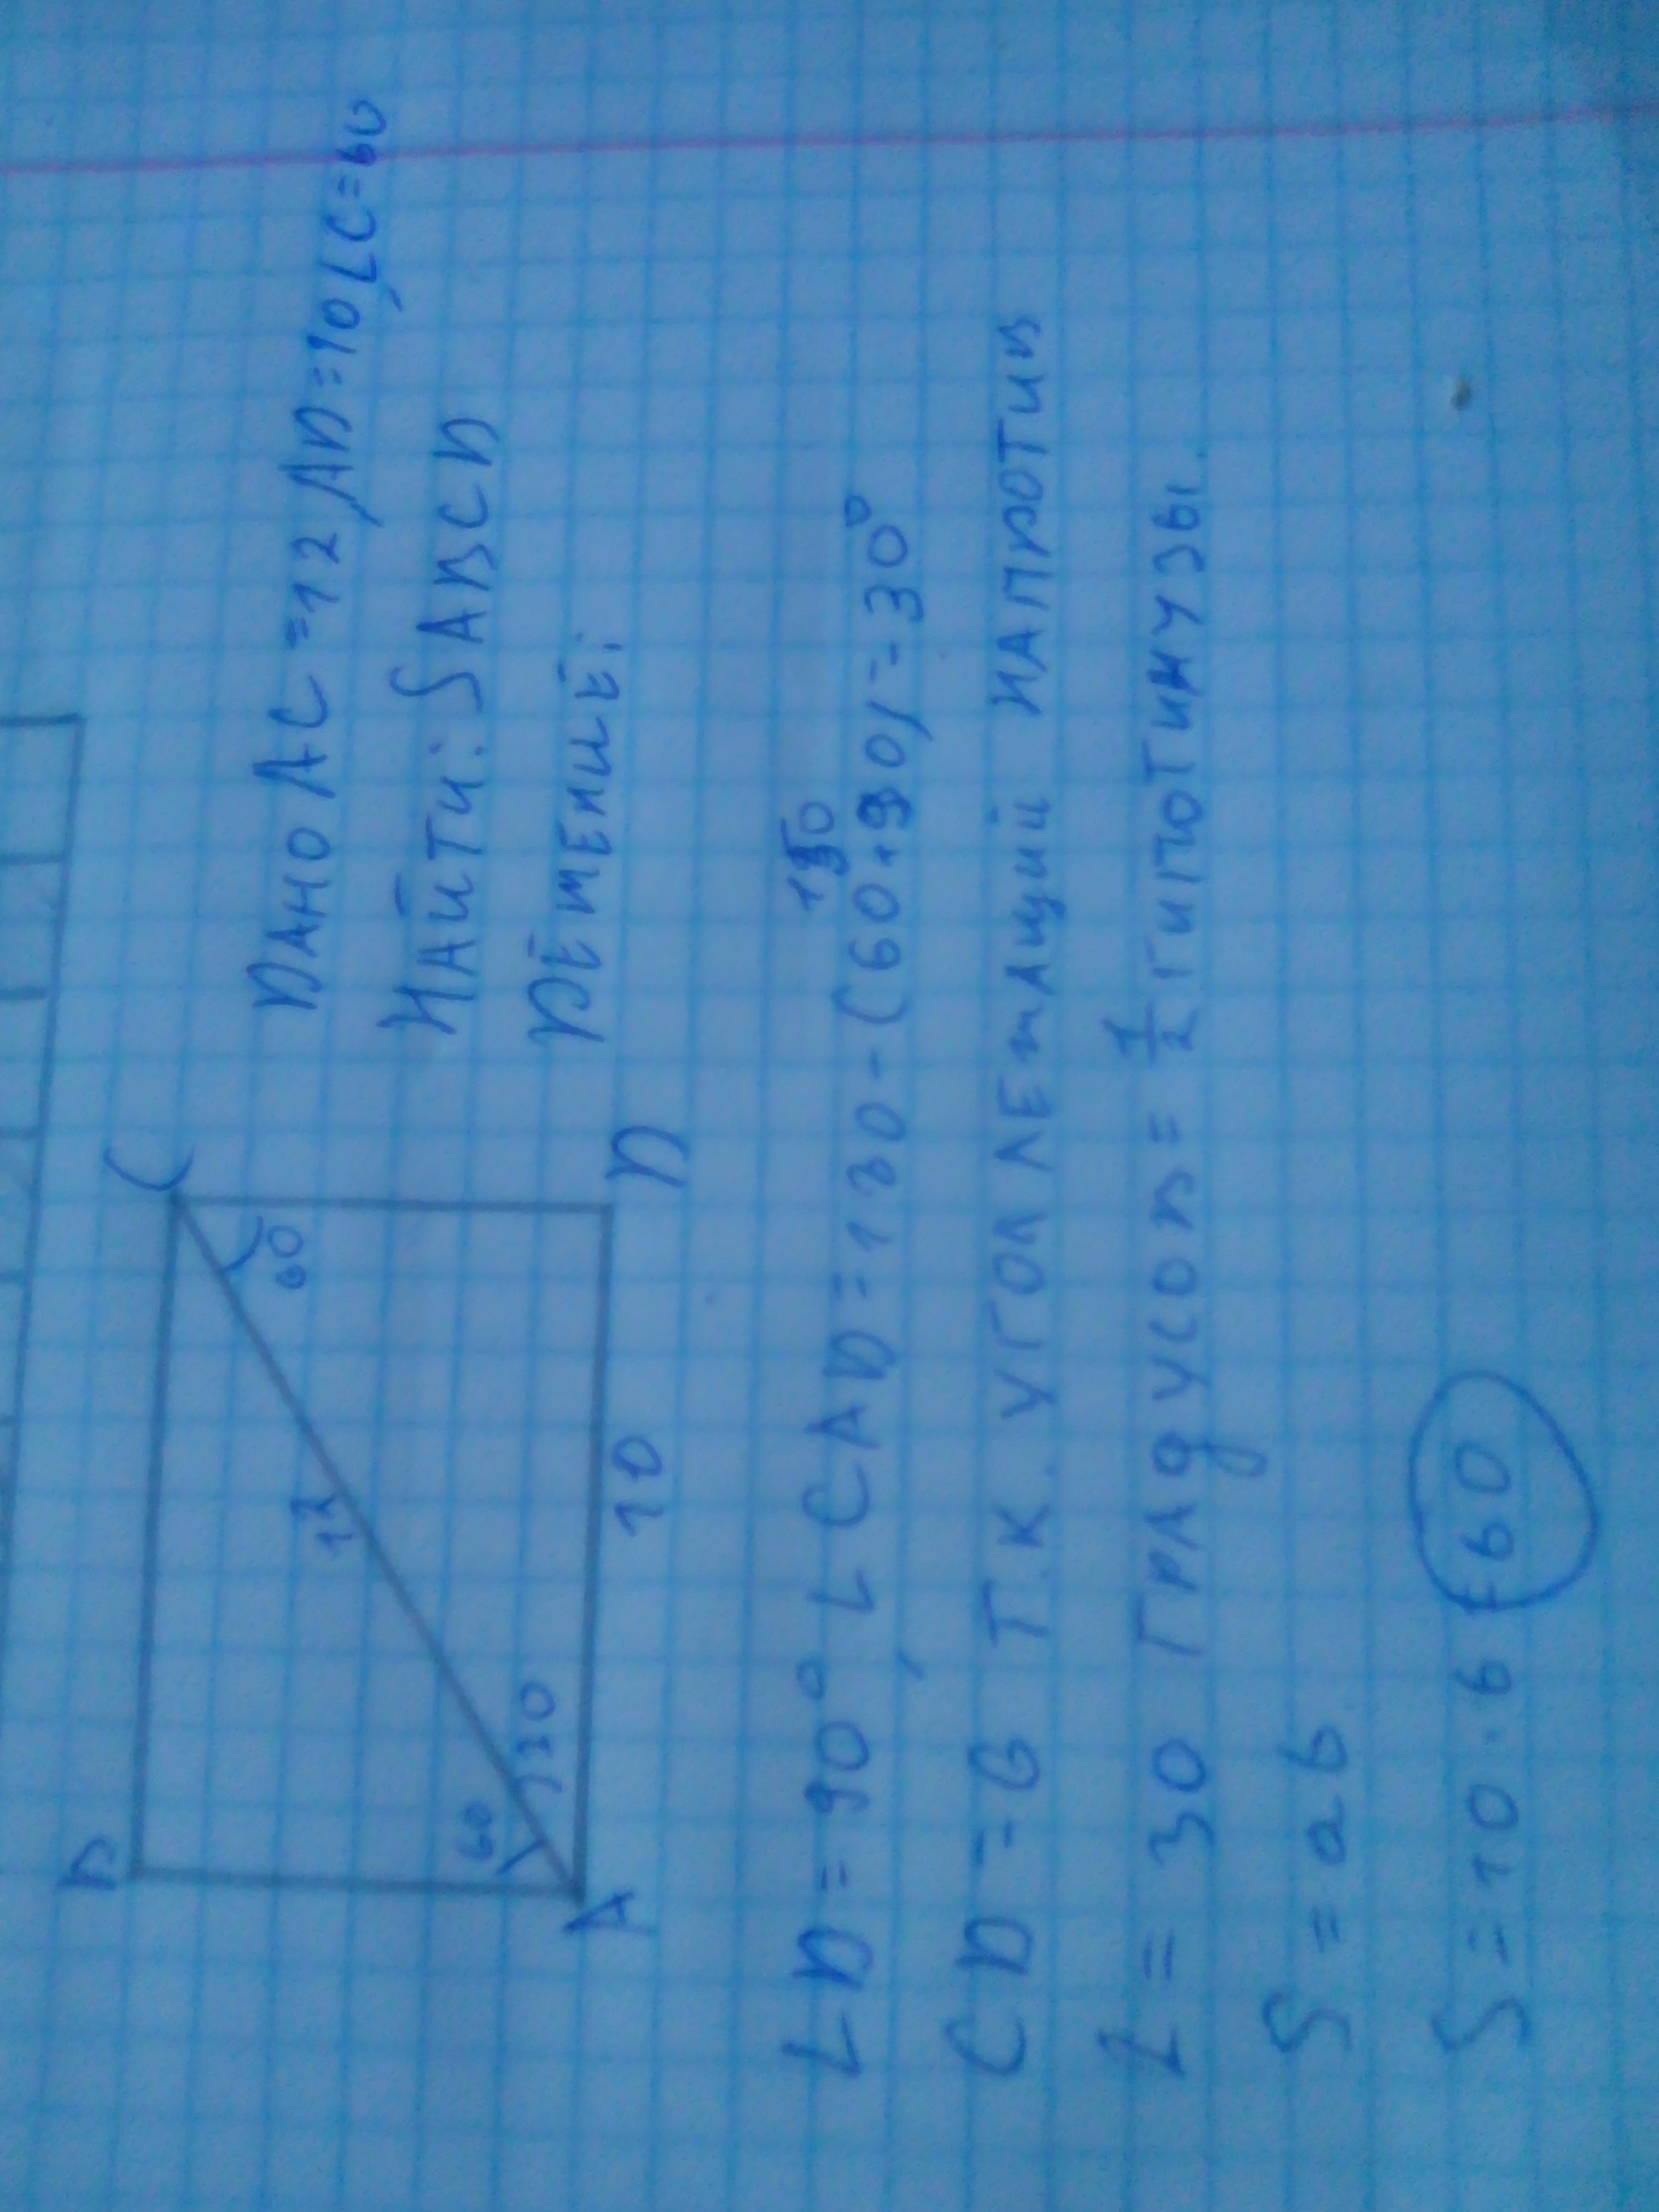 C
12
60
60
30
A
10
D
Дано AC=12, AD=10, LC=60
Найти: SABCD
Решение:
150
LD=90°, LCAD=180-(60+90)=30°
CD=6 т.к. угол лежащий напротив
L=30 градусов=1/2 гипотинузы.
S=ab
S=10·6=60